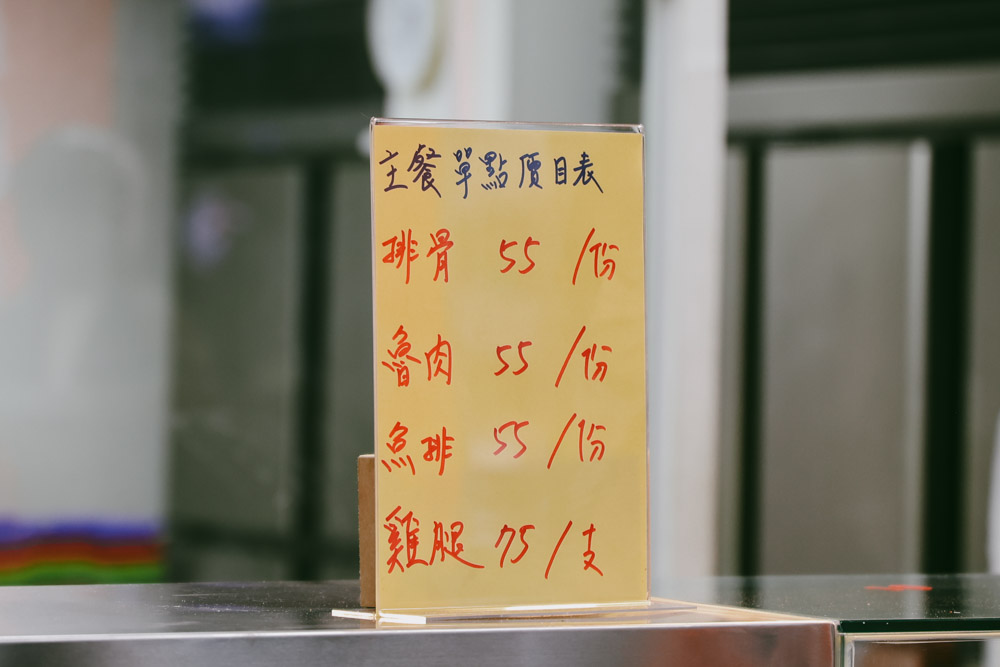 主餐單點價目表
排骨 55 /份
魯肉 55 /份
魚排 55 /份
雞腿 75 /支